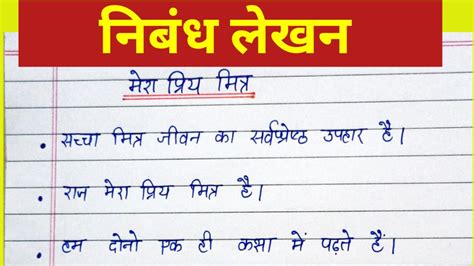 निबंध लेखन
मेरा प्रिय मित्र
• सच्चा मित्र जीवन का सर्वश्रेष्ठ उपहार है।
• राज मेरा प्रिय मित्र है।
• हम दोनो एक ही कक्षा में पढ़ते हैं।